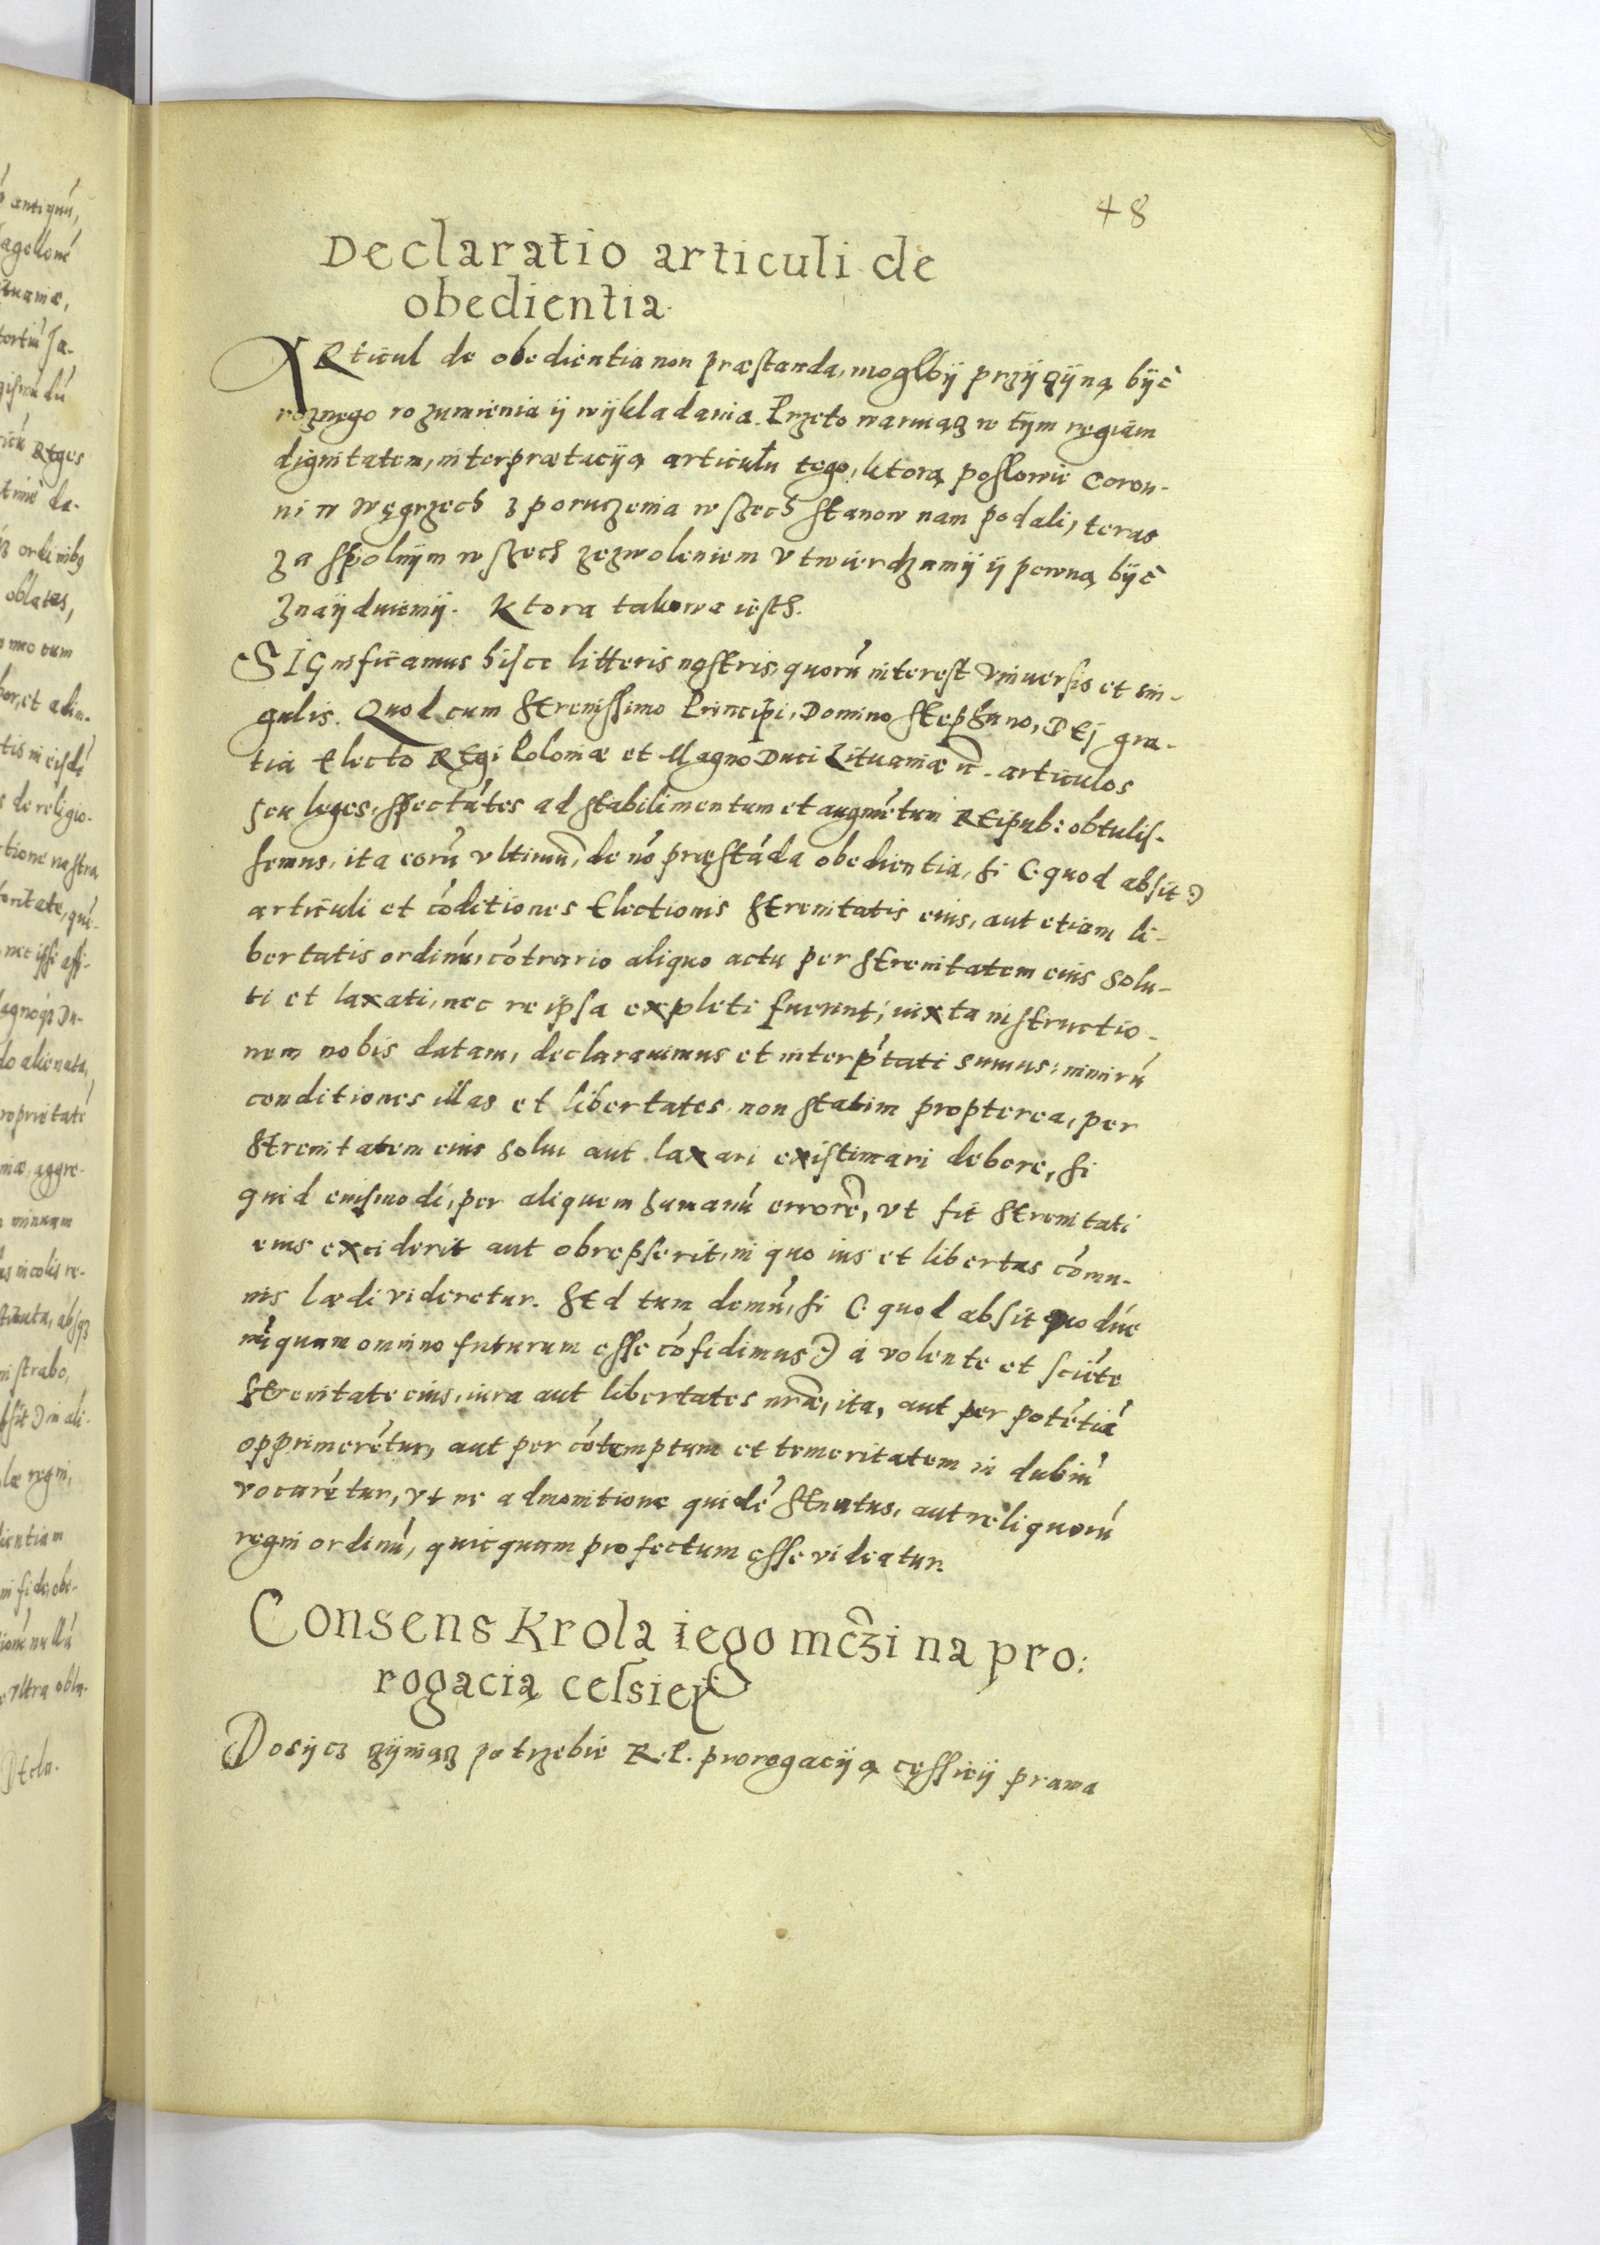 48
Declaratio articuli de
obedientia.
ARticul de obedientia non præstanda, moglbÿ przÿczÿną bÿc
roznego rozumienia ÿ wÿkladania. Przeto waruiącz w tÿm regiam
dignitatem, interprætaciją articułu tego, ktorą posłowie Coron-
ni w Węgrzech z poruczenia wszech stanow nam podali, teras
za spolnÿm wszech zezwoleniem vtwierdzamÿ ÿ pewną bÿc
znaÿduiemÿ. Ktora takowa iesth.
SIGnificamus hisce litteris nostris, quorú interest vniuersis et sin-
gulis. Quod cum SErenissimo Principi, Domino Stephano, DEj gra-
tia Electo REgi Poloniæ et Magno Duci Lituaniæ ꝛc. articulos
seu leges, spectátes ad stabilimentum et augmétum REipub: obtulis-
semus, ita eorú vltimú, de nó præstáda obedientia, si (quod absit)
articuli et códitiones Electionis SErenitatis eius, aut etiam li-
bertatis ordinú, cótrario aliquo actu per SErenitatem eius solu-
ti et laxati, nec re ipsa expleti fuerint, iuxta instructio-
nem nobis datam, declarauimus et interp'tati sumus: nimirú
conditiones illas et libertates non statim propterea, per
SErenitatem eius solui aut laxari existimari debere, si
quid eiusmodi, per aliquem humanú errorē, vt fit SErenitati
eius exciderit aut obrepserit, in quo ius et libertas cómu-
nis lædi videretur. SEd tum demú, si (quod absit quodúe
núquam omnino futurum esse cófidimus) à volente et sciéte
SErenitate eius, iura aut libertates nr̃æ, ita, aut per potétiá
opprimerétur, aut per cótemptum et temeritatem in dubiú
vocarétur, vt ne admonitione quidé SEnatus, aut reliquorú
regni ordinú, quicquam profectum esse videatur.
Consens Krola iego mc̃zi na pro:
rogacią celsieÿ
Dosÿcz czÿniącz potrzebie R.P. prorogacÿą cęssieÿ prawa